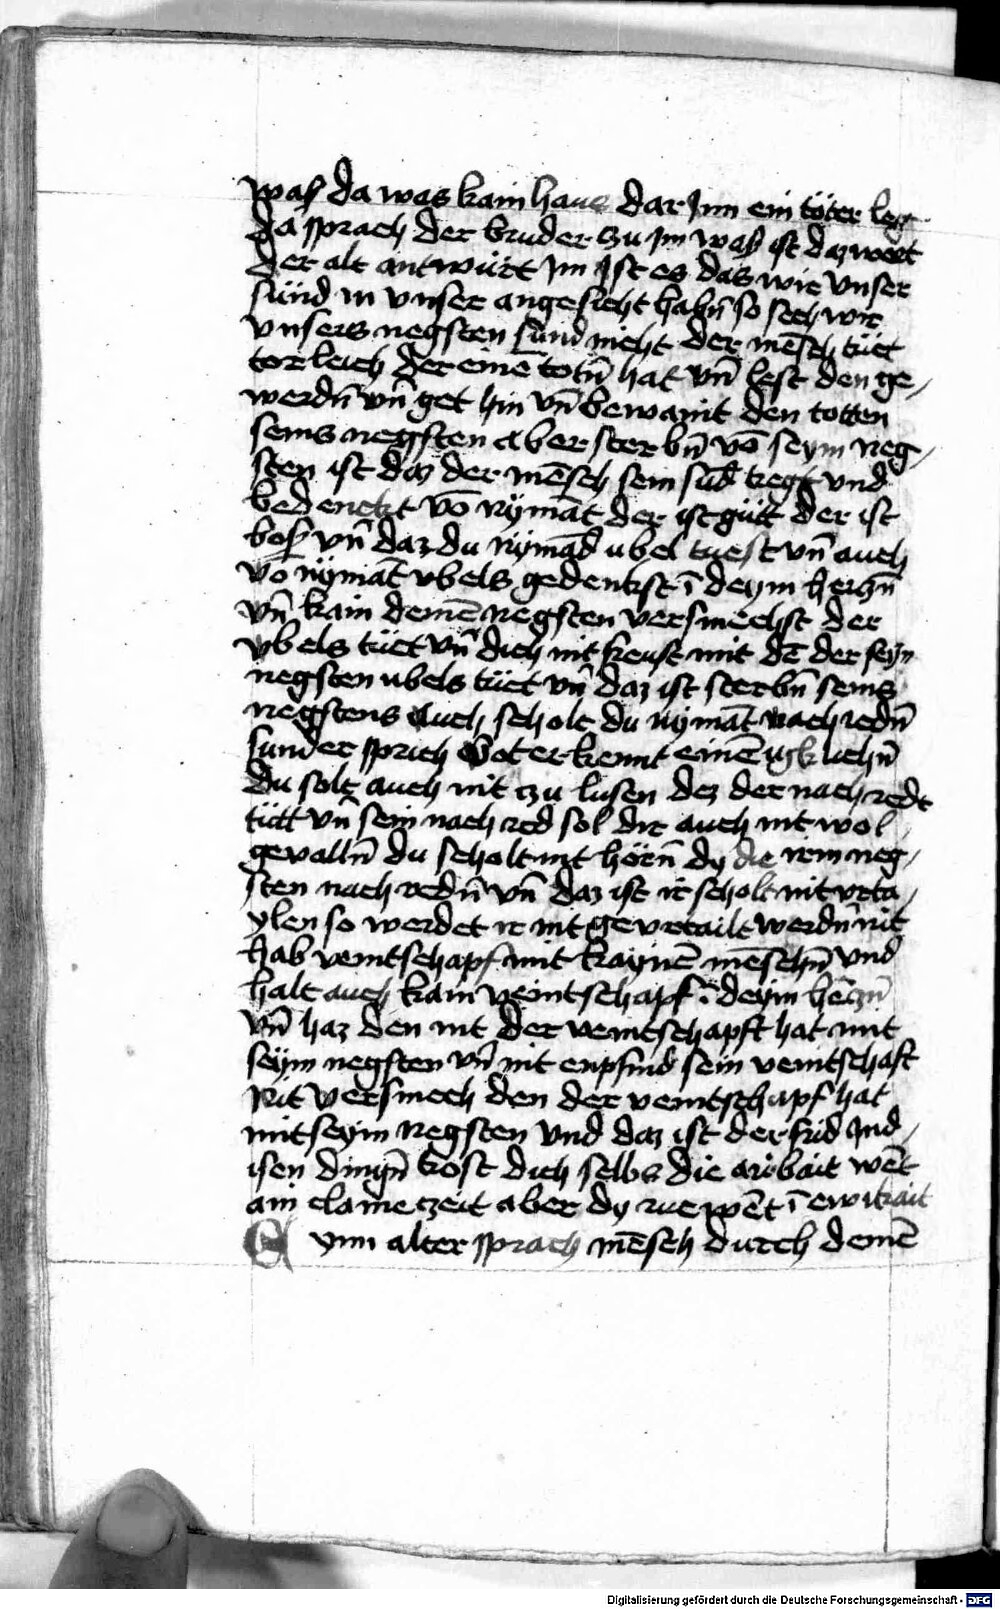 waß da was kain haus dar jnn ein töter leg
da sprach der bruder zu jm waß ist daz wort
der alt antwürt jm Ist es das wir vnser
sünd in vnser angesicht habn̄ so sech wir
vnsers negsten sünd nicht der mēsch tüet
torleich der einē totn̄ hat vn̄ lest den ge⸗
werdn̄ vn̄ get hin vn̄ bewaint den totten
seins negsten aber sterbn̄ vō seym neg⸗
sten ist daz der mēsch sein sūd tregt vnd
bedenckt vō nymāt der ist gütt der ist
boß vn̄ daz du nymād ubel tuest vn̄ auch
vō nymāt vbels gedenkst ī deym herczn̄
vn̄ kain deinē negsten versmechst der
vbels tüet vn̄ dich nit freust mit dē der seyn
negsten ubels tüet vn̄ daz ist sterbn̄ seins
negstens Auch scholt du nymāt nach redn̄
sunder sprich Got erkennt einē igklichn̄
du solt auch nit zu lusen dez der nach redt
tütt vn̄ sein nach red sol dir auch nit wol
gevalln̄ du scholt nit hörn̄ dy die irem neg⸗
sten nach redn̄ vn̄ daz ist ir scholt nit vrta⸗
ylen so werdet ir nit gevrtailt werdn̄ nit
hab veintschapf mit kaynē mēschn̄ vnd
halt auch kain veintschapf ī deym hēczn̄
vn̄ haz den nit der veintschapft hat mit
seym negsten vn̄ nit enpfind sein veintschaft
Nit versmech den der veintschapf hat
mit seym negsten vnd daz ist der frid Ind⸗
isen dingn̄ tost dich selbs die arbait wēt
ain claine zeit aber dy rue wēt ī ewikait
E ynn alter sprach mēsch durch deinē
Digitalisierung gefördert durch die Deutsche Forschungsgemeinschaft - DFG